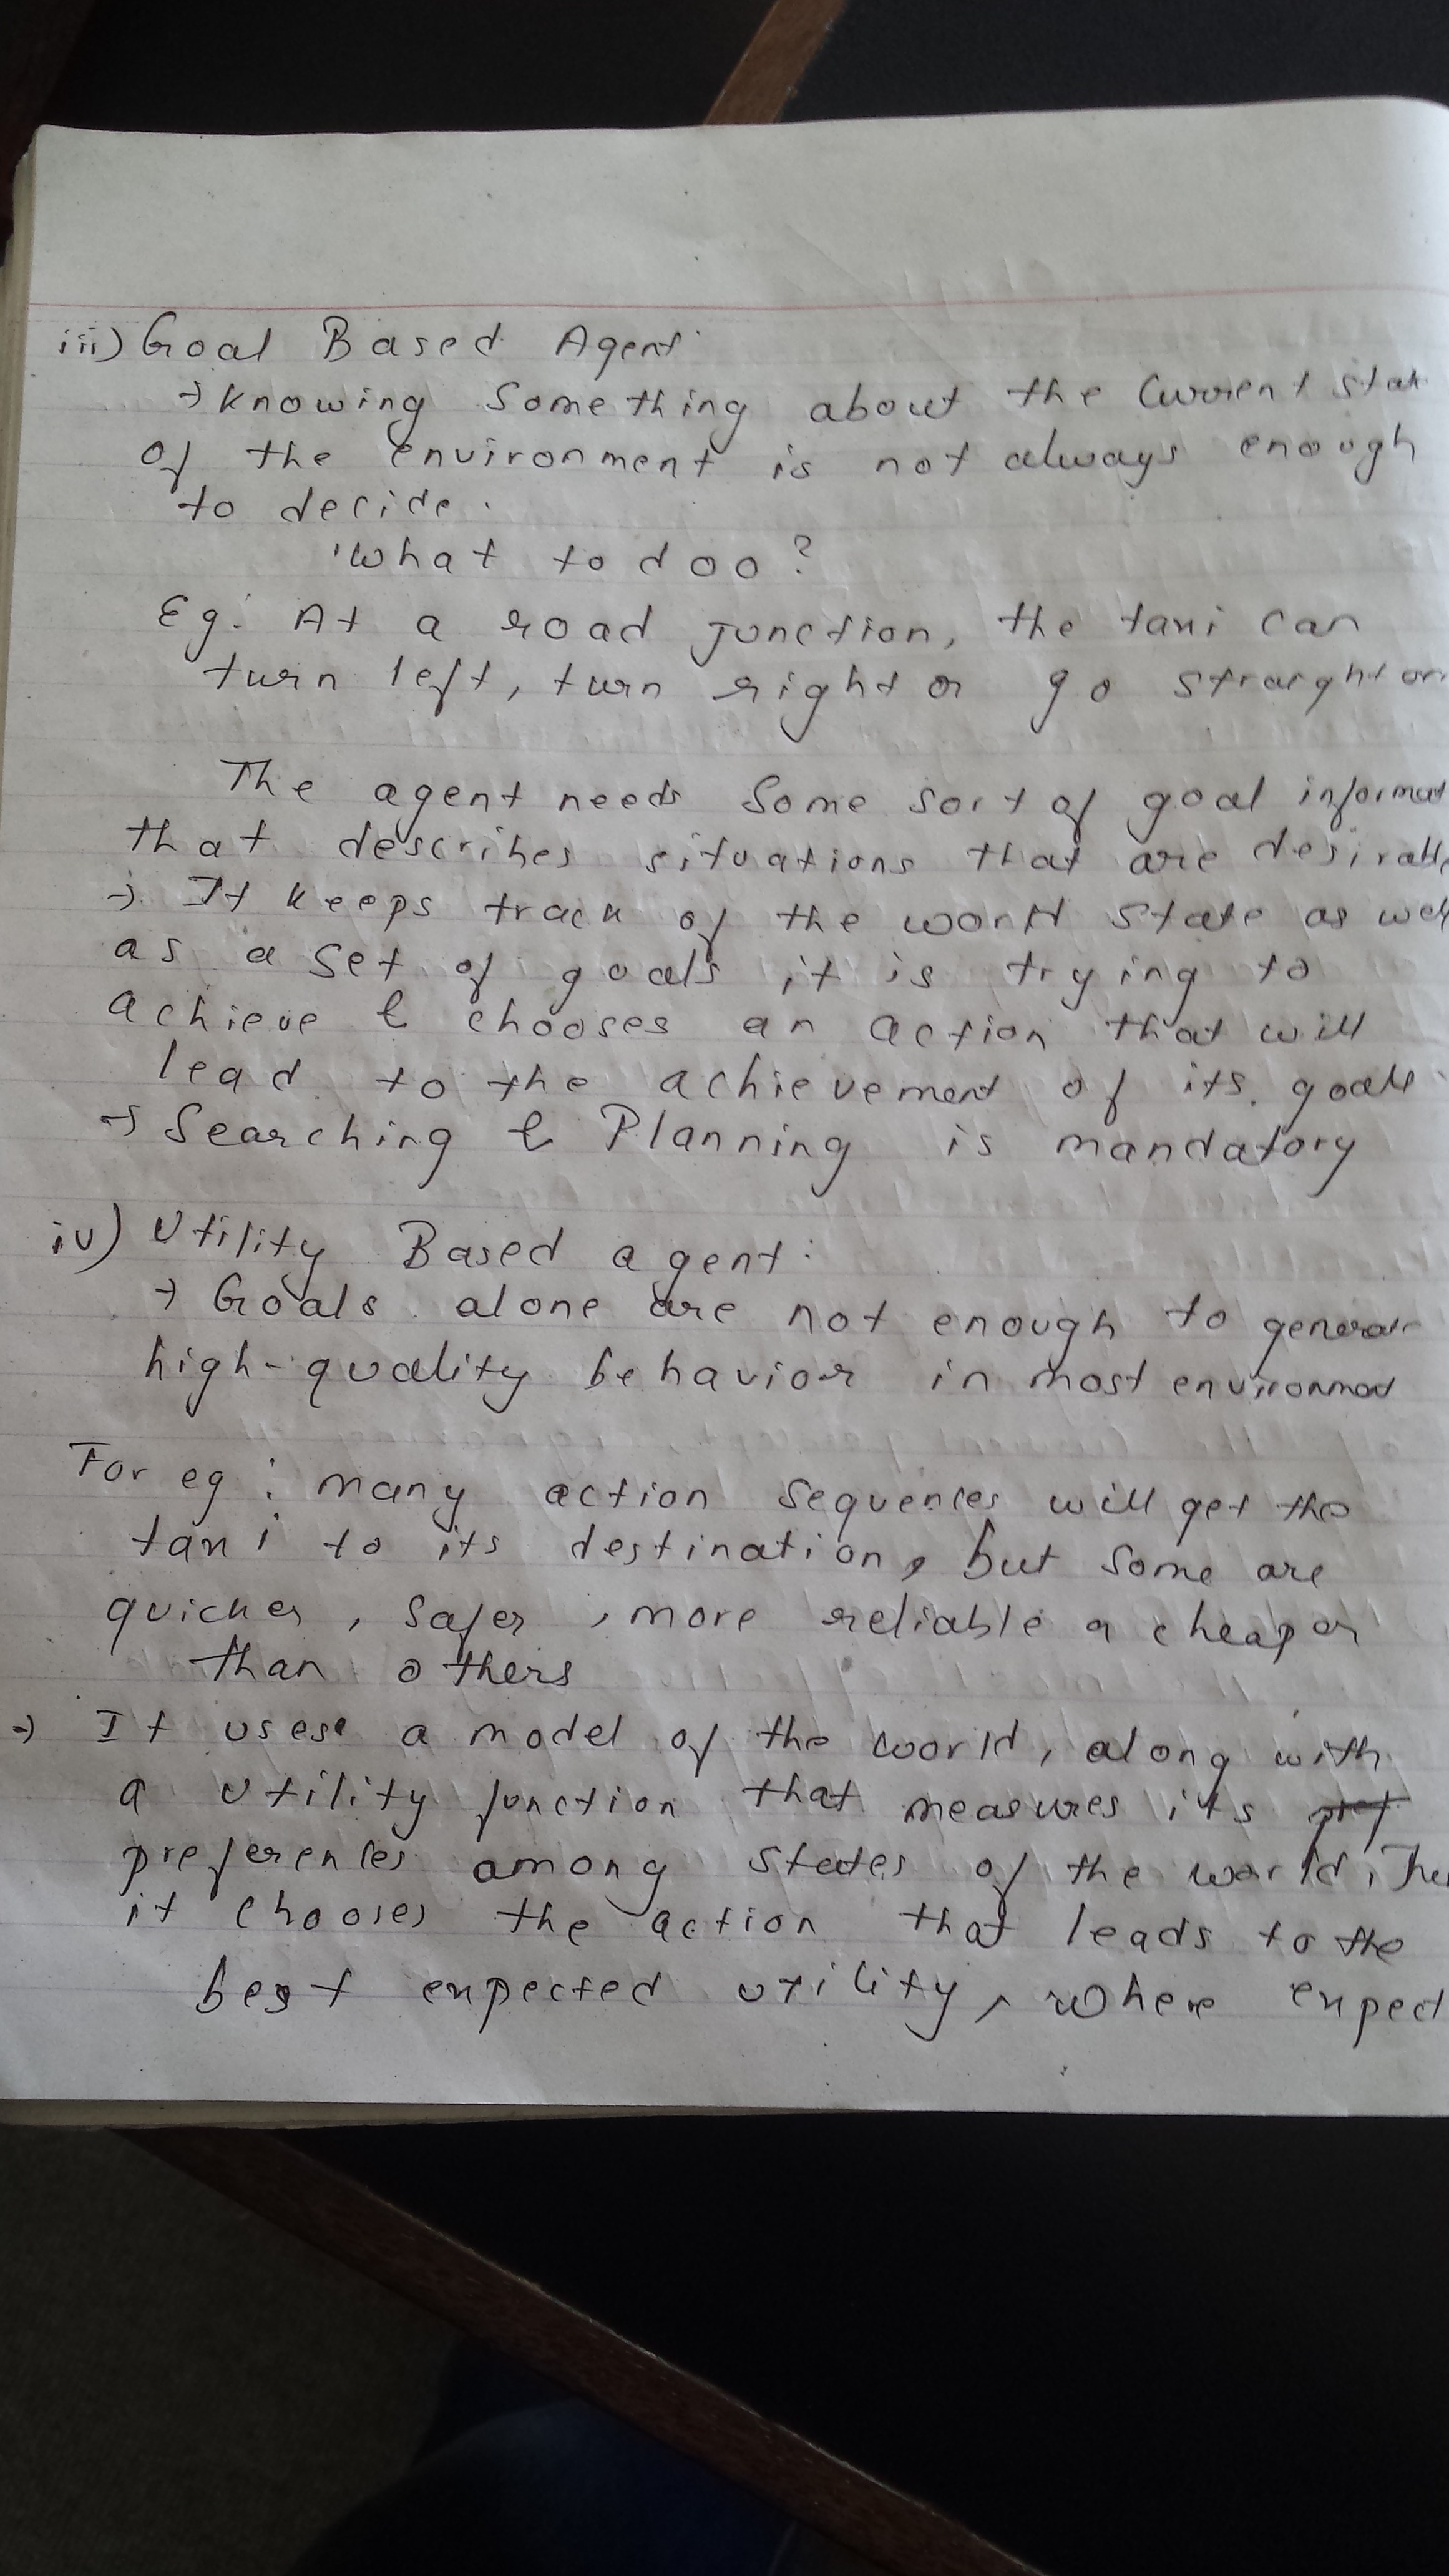 iii) Goal Based Agent
→ knowing something about the current stat
of the environment is not always enough
to decide.
'What to doo?
Eg: At a road junction, the taxi can
turn left, turn right or go straight on.
The agent needs some sort of goal informat
that describes situations that are desirable
→ It keeps track of the world state as well
as a set of goals it is trying to
achieve & chooses an action that will
lead to the achievement of its goals.
→ Searching & Planning is mandatory
iv) Utility Based agent:
→ Goals alone are not enough to generate
high-quality behavior in most environment
For eg: many action sequences will get the
taxi to its destination, but some are
quicker, safer, more reliable a cheaper
than others
→ It usese a model of the world, along with
a utility function that measures its pref
preferences among states of the world. The
it chooses the action that leads to the
best expected utility, where expect